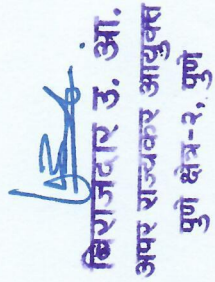 बिराजदार उ. आं.
अपर राज्यकर आयुक्त
पुणे क्षेत्र-२, पुणे